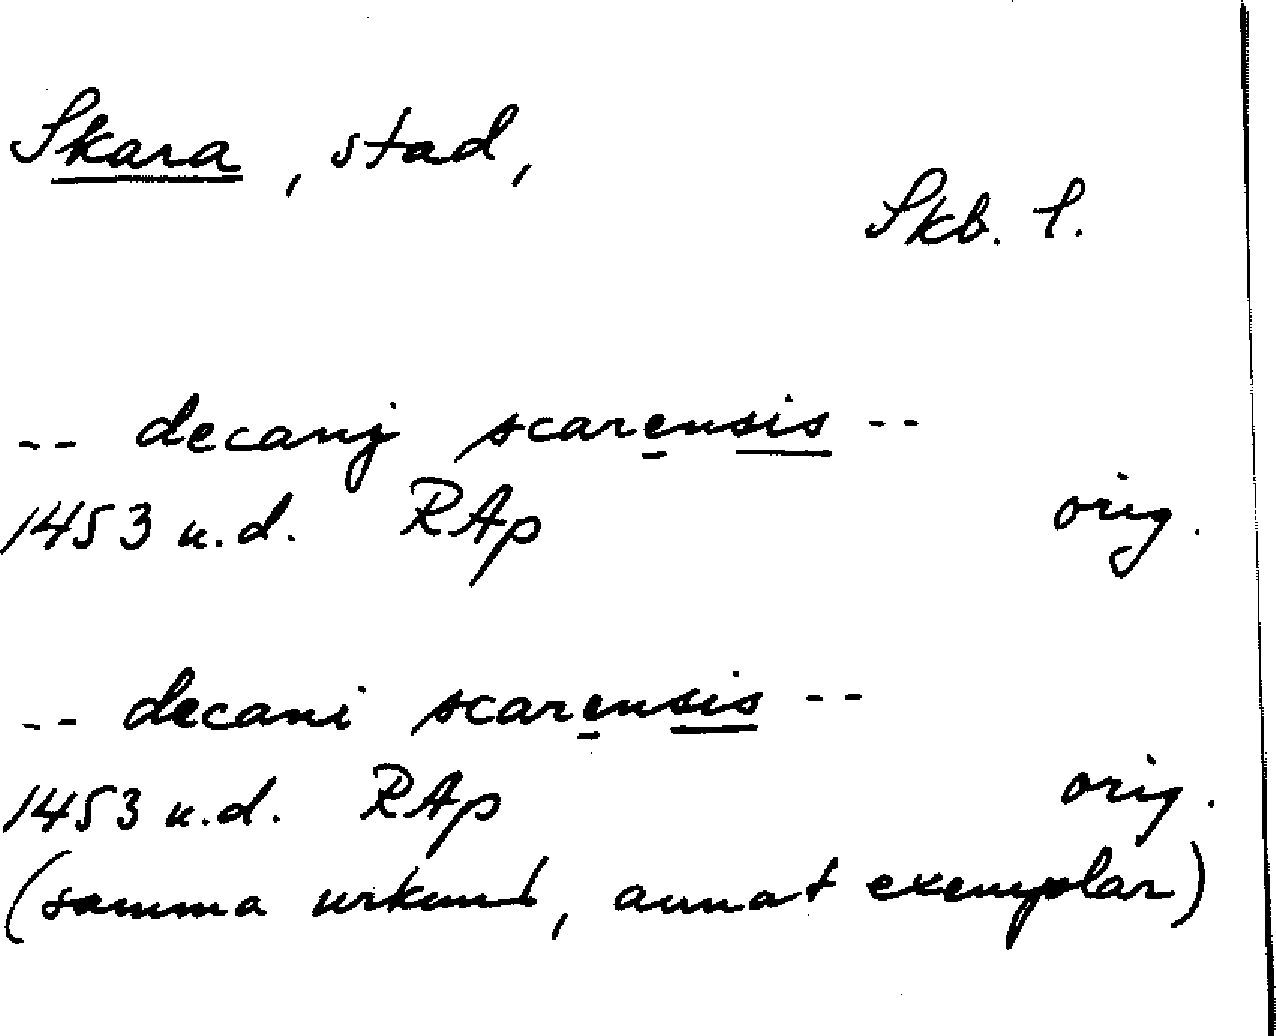 Skara, stad,
Skb. l.
-- decanj scarensis --
1453 u.d. RAp orig.
-- decani scarensis --
1453 u.d. RAp orig.
(samma urkund, annat exemplar)